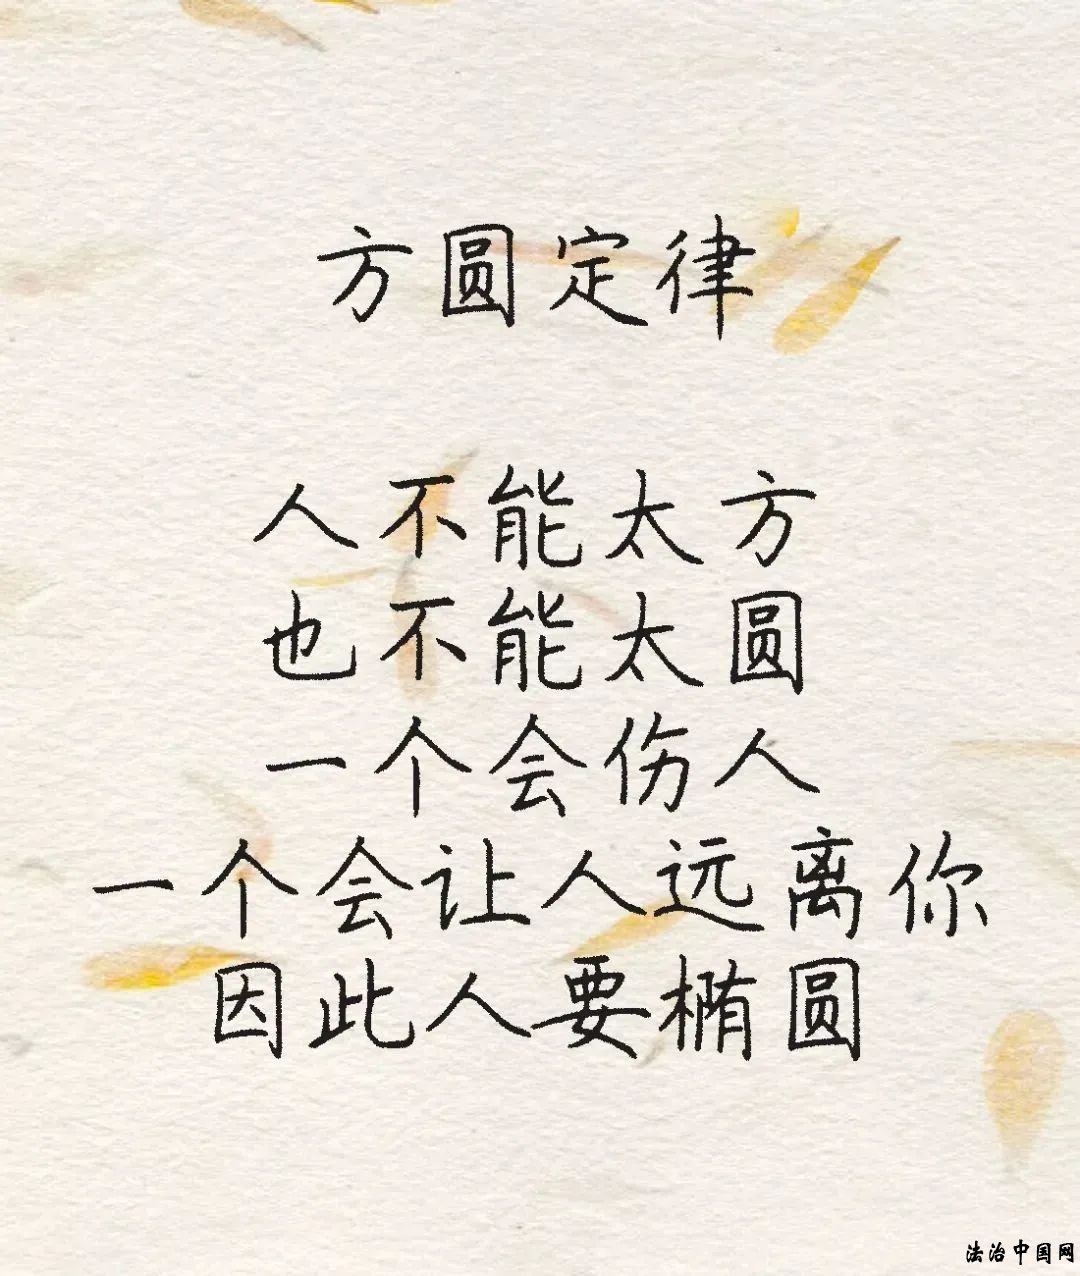 方圆定律
人不能太方
也不能太圆
一个会伤人
一个会让人远离你
因此人要椭圆
法治中国网